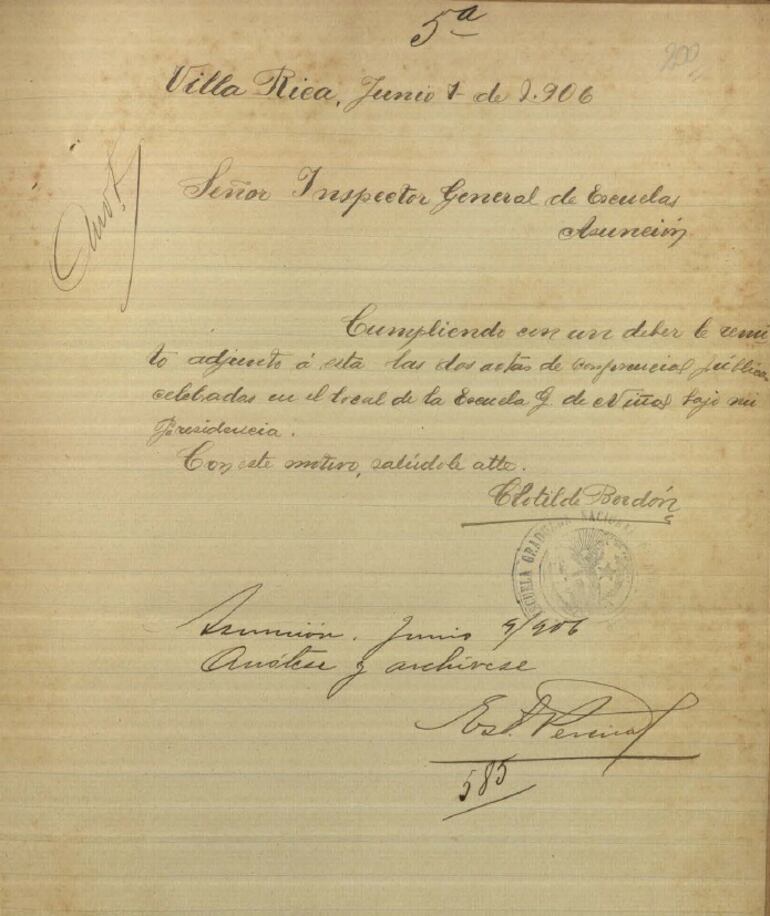 5ª
200
Villa Rica, Junio 1 de 1.906
Anot.
Señor Inspector General de Escuelas
Asunción
Cumpliendo con un deber le remi-
to adjunto á esta las dos actas de conferencias públicas
celebadas en el local de la Escuela G. de Niñas bajo mi
Presidencia.
Con este motivo, salúdole atte.
Clotilde Bordón
ESCUELA GRADUADA NACIONAL
Asunción. Junio 9/906
Anótese y archívese
585